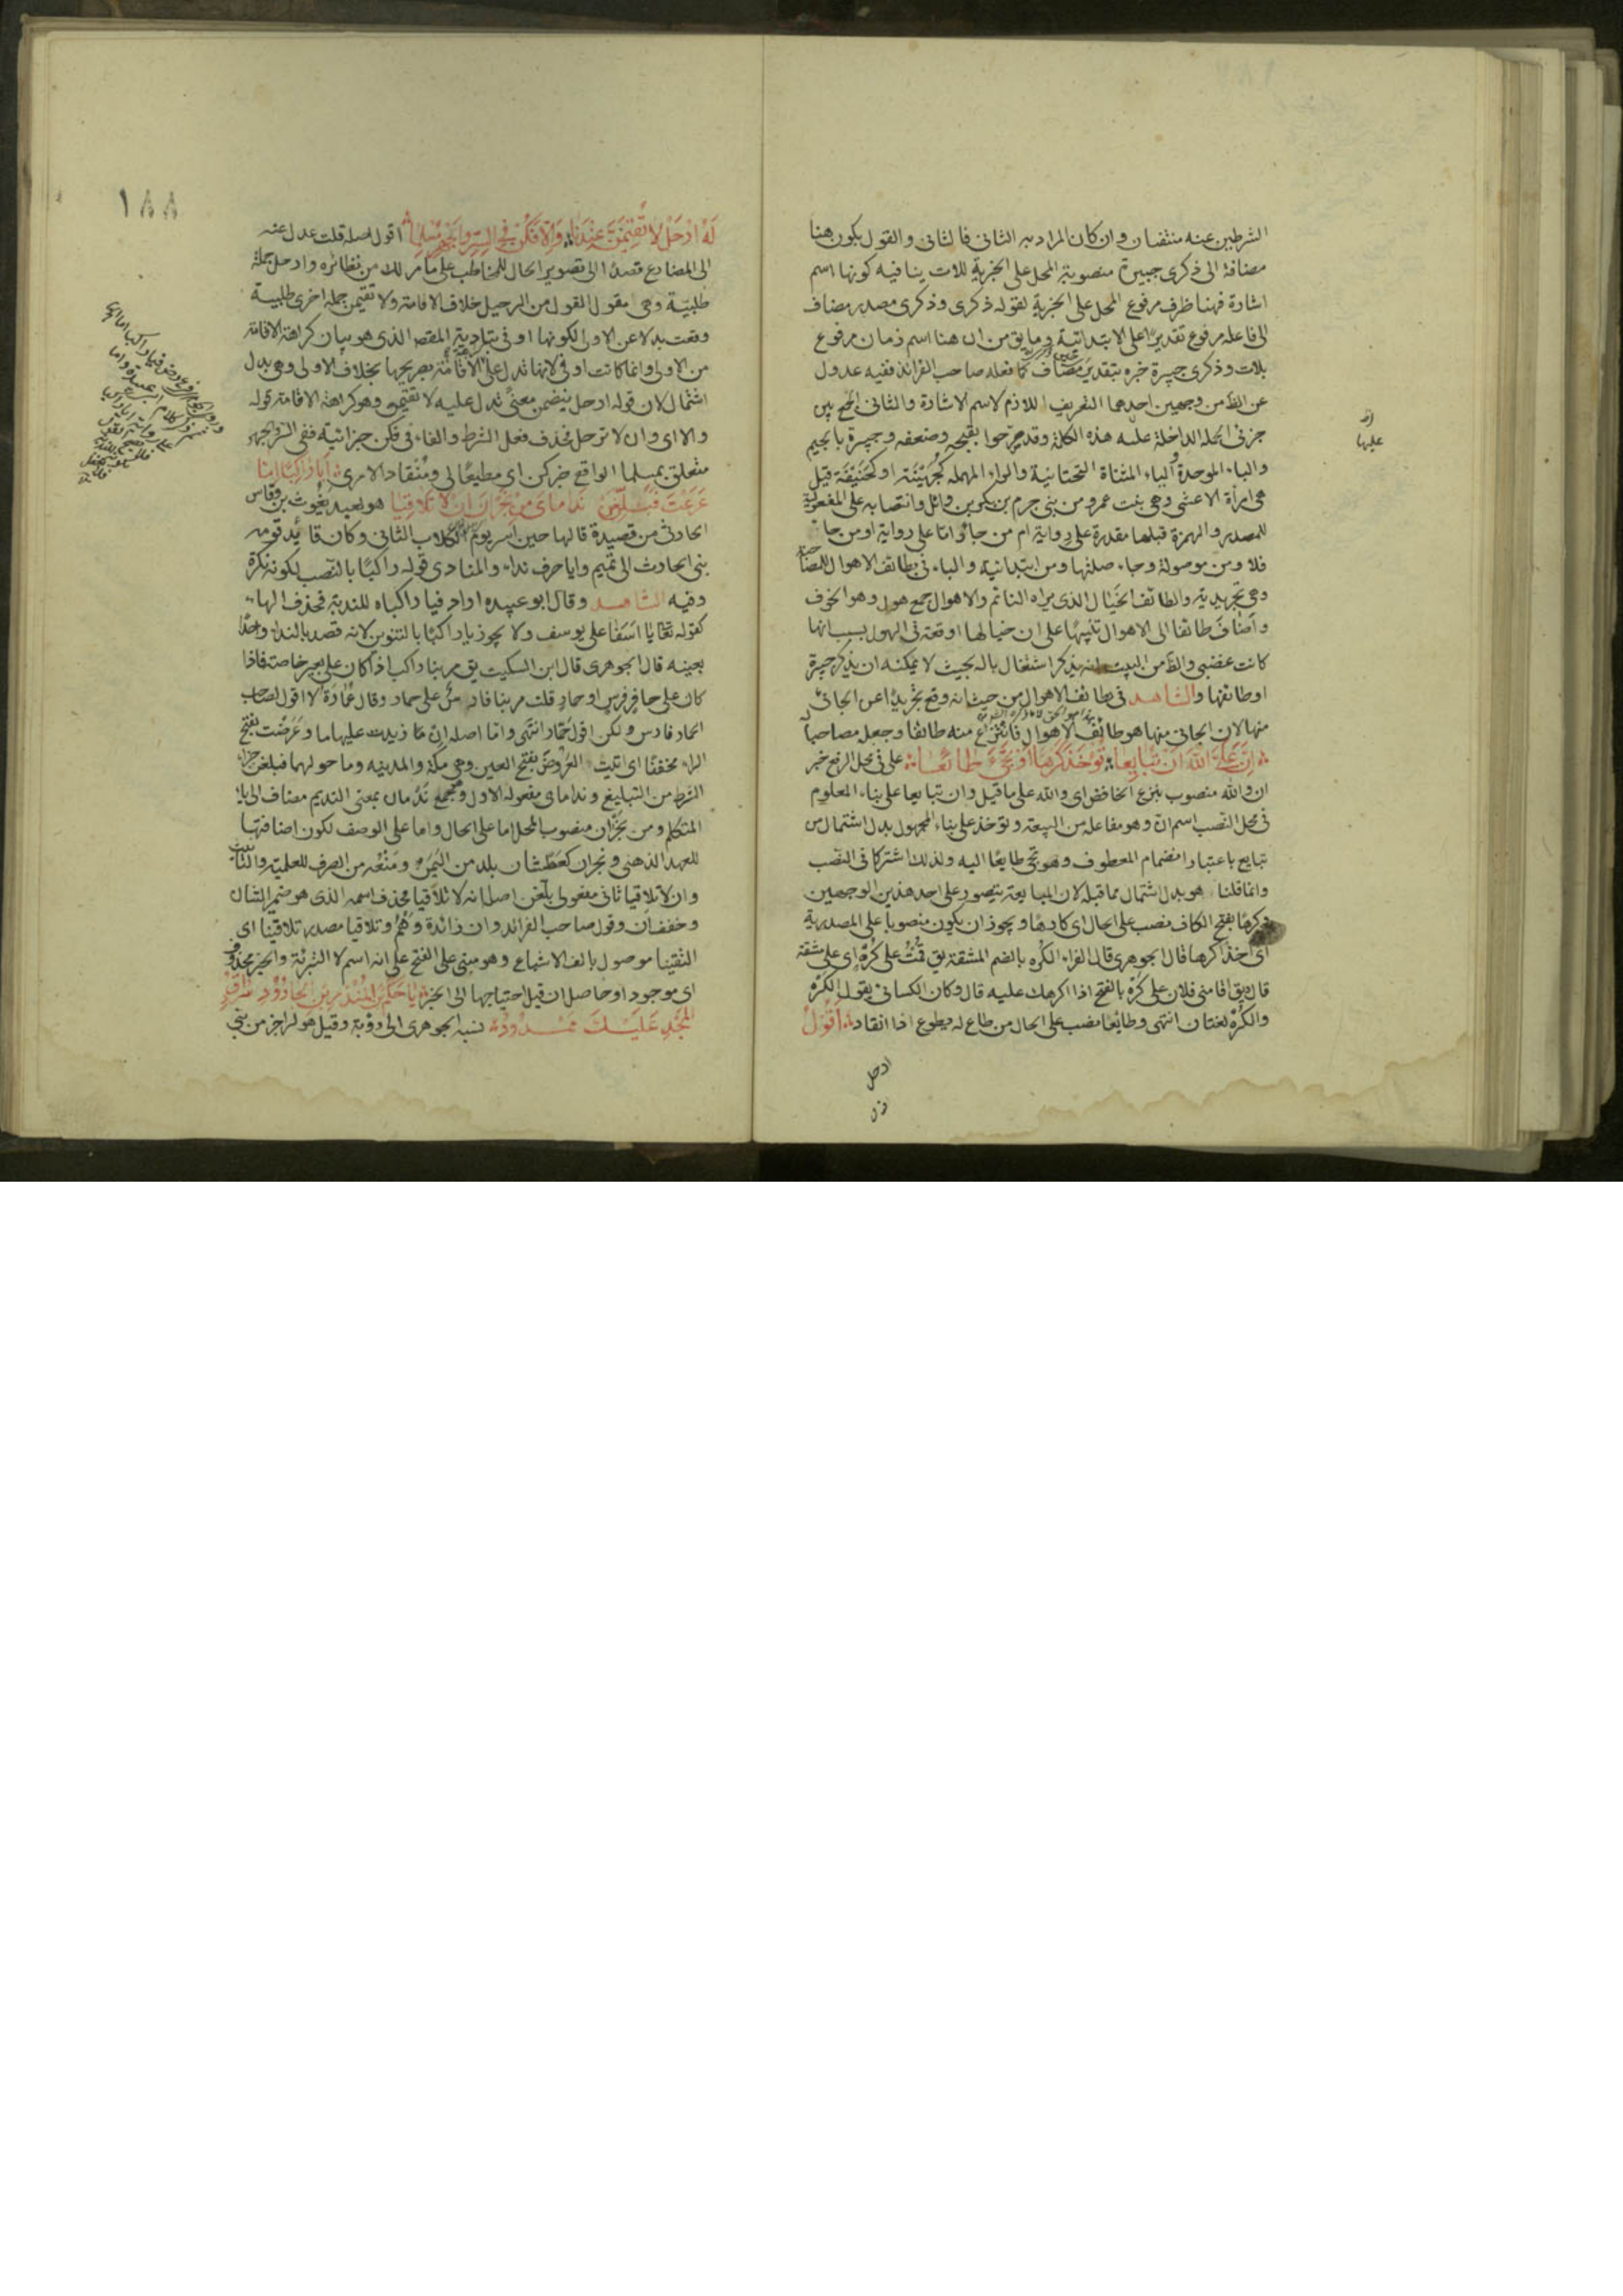 الشرطين عنه منتفيان وان كان المراد به الثانى فالثانى والقول بكون هنا
مضافة الى ذكرى جبيرة منصوبة المحل على الخبرية للات ينافيه كونها اسم
اشارة فهنا ظرف مرفوع المحل على الخبرية لقوله ذكرى وذكرى مصدر مضاف
الى فاعله مرفوع تقديرا على الابتدائية وما يق من ان هنا اسم زمان مرفوع
بلات وذكرى جبيرة خبره بتقدير مضاف كما فعله صاحب الفرائد ففيه عدول
عن الظ من وجهين احدهما التعريف اللازم لاسم الاشارة والثانى الجمع بين
جزئى الجملة الداخلة عليه هذه الكلمة وقد صرحوا بقبحه وضعفه وجبيرة بالجيم
والباء الموحدة والياء المثناة التحتانية والراء المهملة كجهينة او كحنيفة قيل
هى امرأة الاعشى وهى بنت عمرو من بنى جرم بن بكر بن وائل وانتصابه على المفعولية
للمصدر والهمزة قبلها مقدرة على رواية ام من جا واما على رواية او من جا
فلا ومن موصولة وجاء صلتها ومن ابتدائية والباء فى بطائف الاهوال للمصاحبة
وهى تجريدية والطائف الخيال الذى يراه النائم والاهوال جمع هول وهو الخوف
واضاف طائفا الى الاهوال تنبيها على ان خيالها اوقعته فى الهول بسبب انها
كانت غضبى والظ من البيت انه يذكر اشتغال باله بحيث لا يمكنه ان يذكر جبيرة
او طائفها والشاهد فى بطائف الاهوال من حيث انه وقع تجريدا عن الجائى
منها لان الجائى منها هو طائف الاهوال فانتزاع منه طائفا وجعل مصاحبا له
ان على الله ان تبايعا تؤخذ كرها او تجىء طائعا على فى محل الرفع خبر
ان والله منصوب بنزع الخافض اى والله على ما قيل وان تبايعا على بناء المعلوم
فى محل النصب اسم ان وهو مفاعلة من البيعة وتؤخذ على بناء المجهول بدل اشتمال من
تبايع باعتبار انضمام المعطوف وهو تجى طايعا اليه ولذلك اشتركا فى النصب
وانما قلنا هو بدل اشتمال مما قبله لان المبايعة يتصور على احد هذين الوجهين
وكرها بفتح الكاف نصب على الحال اى كارها ويجوز ان يكون منصوبا على المصدرية
اى اخذ اكرها قال الجوهرى قال الفراء الكره بالضم المشقة يق قمت على كره اى على مشقة
قال ويق اقامنى فلان على كره بالفتح اذا اكرهك عليه قال وكان الكسائى يقول الكره
والكره لغتان انتهى وطائعا نصب على الحال من طاع له يطوع اذا انقاد اقول
ارحل
له ارحل لا تقيمن عندنا والا فكن فى السر والجهر مسلما اقول اصله قلت عدل عنه
الى المضارع قصدا الى تصوير الحال للمخاطب على ما مر لك من نظائره وارحل جملة
طلبية وهى مقول القول من الرحيل خلاف الاقامة ولا تقيمن جملة اخرى طلبية
وقعت بدلا عن الاولى لكونها اوفى بتادية المقصد الذى هو بيان كراهة الاقامة
من الاولى وانما كانت اوفى لانها تدل على الاقامة بصريحها بخلاف الاولى وهى بدل
اشتمال لان قوله ارحل يتضمن معنى تدل عليه لا تقيمن وهو كراهة الاقامة قوله
والا اى وان لا ترحل فحذف فعل الشرط والفاء فى فكن جزائية ففى السر والجهر
متعلق بمسلما الواقع خبر كن اى مطيعا لى ومنقادا لامرى ايا راكبا اما
عرضت فبلغن نداماى من نجران ان لا تلاقيا هو لعبد يغوث بن وقاص
الحارثى من قصيدة قالها حين اسر يوم الكلاب الثانى وكان قائد قومه
بنى الحارث الى تميم وايا حرف نداء والمنادى قوله راكبا بالنصب لكونه نكرة
وفيه الشاهد وقال ابو عبيده اراد فيا راكباه للندبة فحذف الهاء
كقوله تعالى يا اسفا على يوسف ولا يجوز يا راكبا بالتنوين لانه قصد بالنداء واحدا
بعينه قال الجوهرى قال ابن السكيت يق مر بنا راكب اذا كان على بعير خاصة فاذا
كان على حافر فرس او حمار قلت مر بنا فارس على حمار وقال عمارة لا اقول لصاحب
الحمار فارس ولكن اقول حمار انتهى واما اصله ان ما زيدت عليها ما وعرضت بفتح
الراء مخففا اى اتيت العروض بفتح العين وهى مكة والمدينه وما حولهما فبلغن جزاء
الشرط من التبليغ ونداماى مفعوله الاول وجمع ندمان بمعنى النديم مضاف الى ياء
المتكلم ومن نجران منصوب المحل اما على الحال واما على الوصف لكون اضافتها
للعهد الذهنى ونجران كعطشان بلد من اليمن ومنعه من الصرف للعلمية والتانيث
وان لا تلاقيا ثانى مفعولى بلغن اصله انه لا تلاقيا فحذف اسمه الذى هو ضمير الشان
وخفف ان وقول صاحب الفرائد وان زائدة وهم وتلاقيا مصدر تلاقينا اى
التقينا موصول بالف الاشباع وهو مبنى على الفتح على انه اسم لا التبرئة والخبر محذوف
اى موجود او حاصل ان قيل احتياجها الى الخبر يا حكم بن المنذر بن الجارود سرادق
المجد عليك ممدود نسبه الجوهرى الى رؤبة وقيل هو لراجز من بنى
١٨٨
عليها